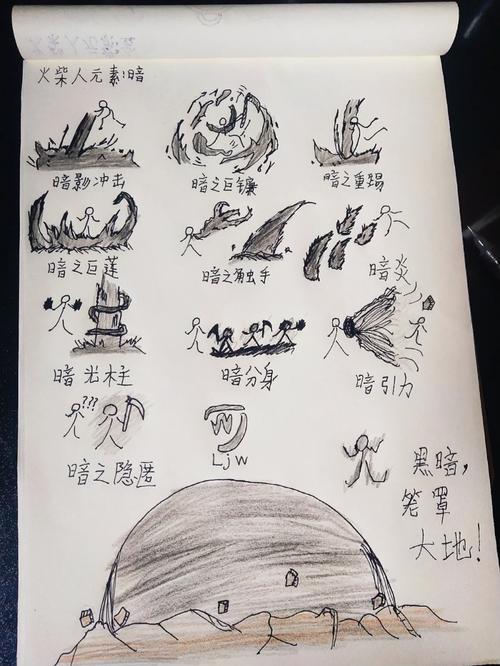 火柴人元素:暗
暗影冲击
暗之巨镰
暗之重踢
暗之巨莲
暗之触手
暗炎
暗光柱
暗分身
暗引力
???
暗之隐匿
LjW
黑暗,
笼罩
大地!